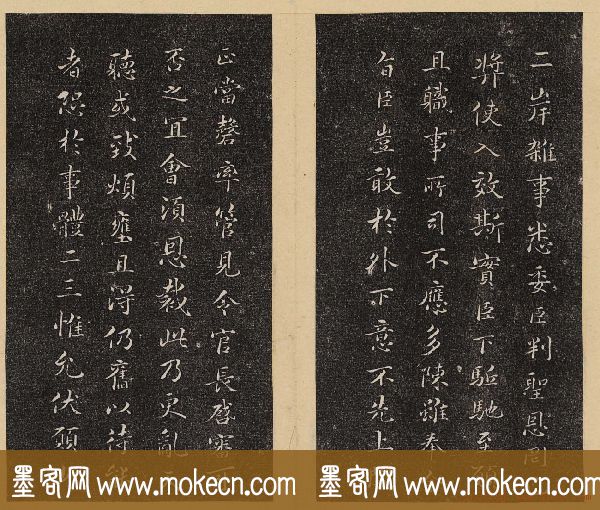 二岸雜事悉委臣判聖恩
獎使入效斯實臣下驅馳至
且職事所司不應多陳雖奉
旨臣豈敢於外下意不先上
正當罄率管見令官長啓審可
否之宜會須恩裁此乃更亂
聽或致煩壅且得仍舊以待
者深於事體二三惟允伏願
墨客网 www.mokecn.com 墨客网 www.mokecn.com